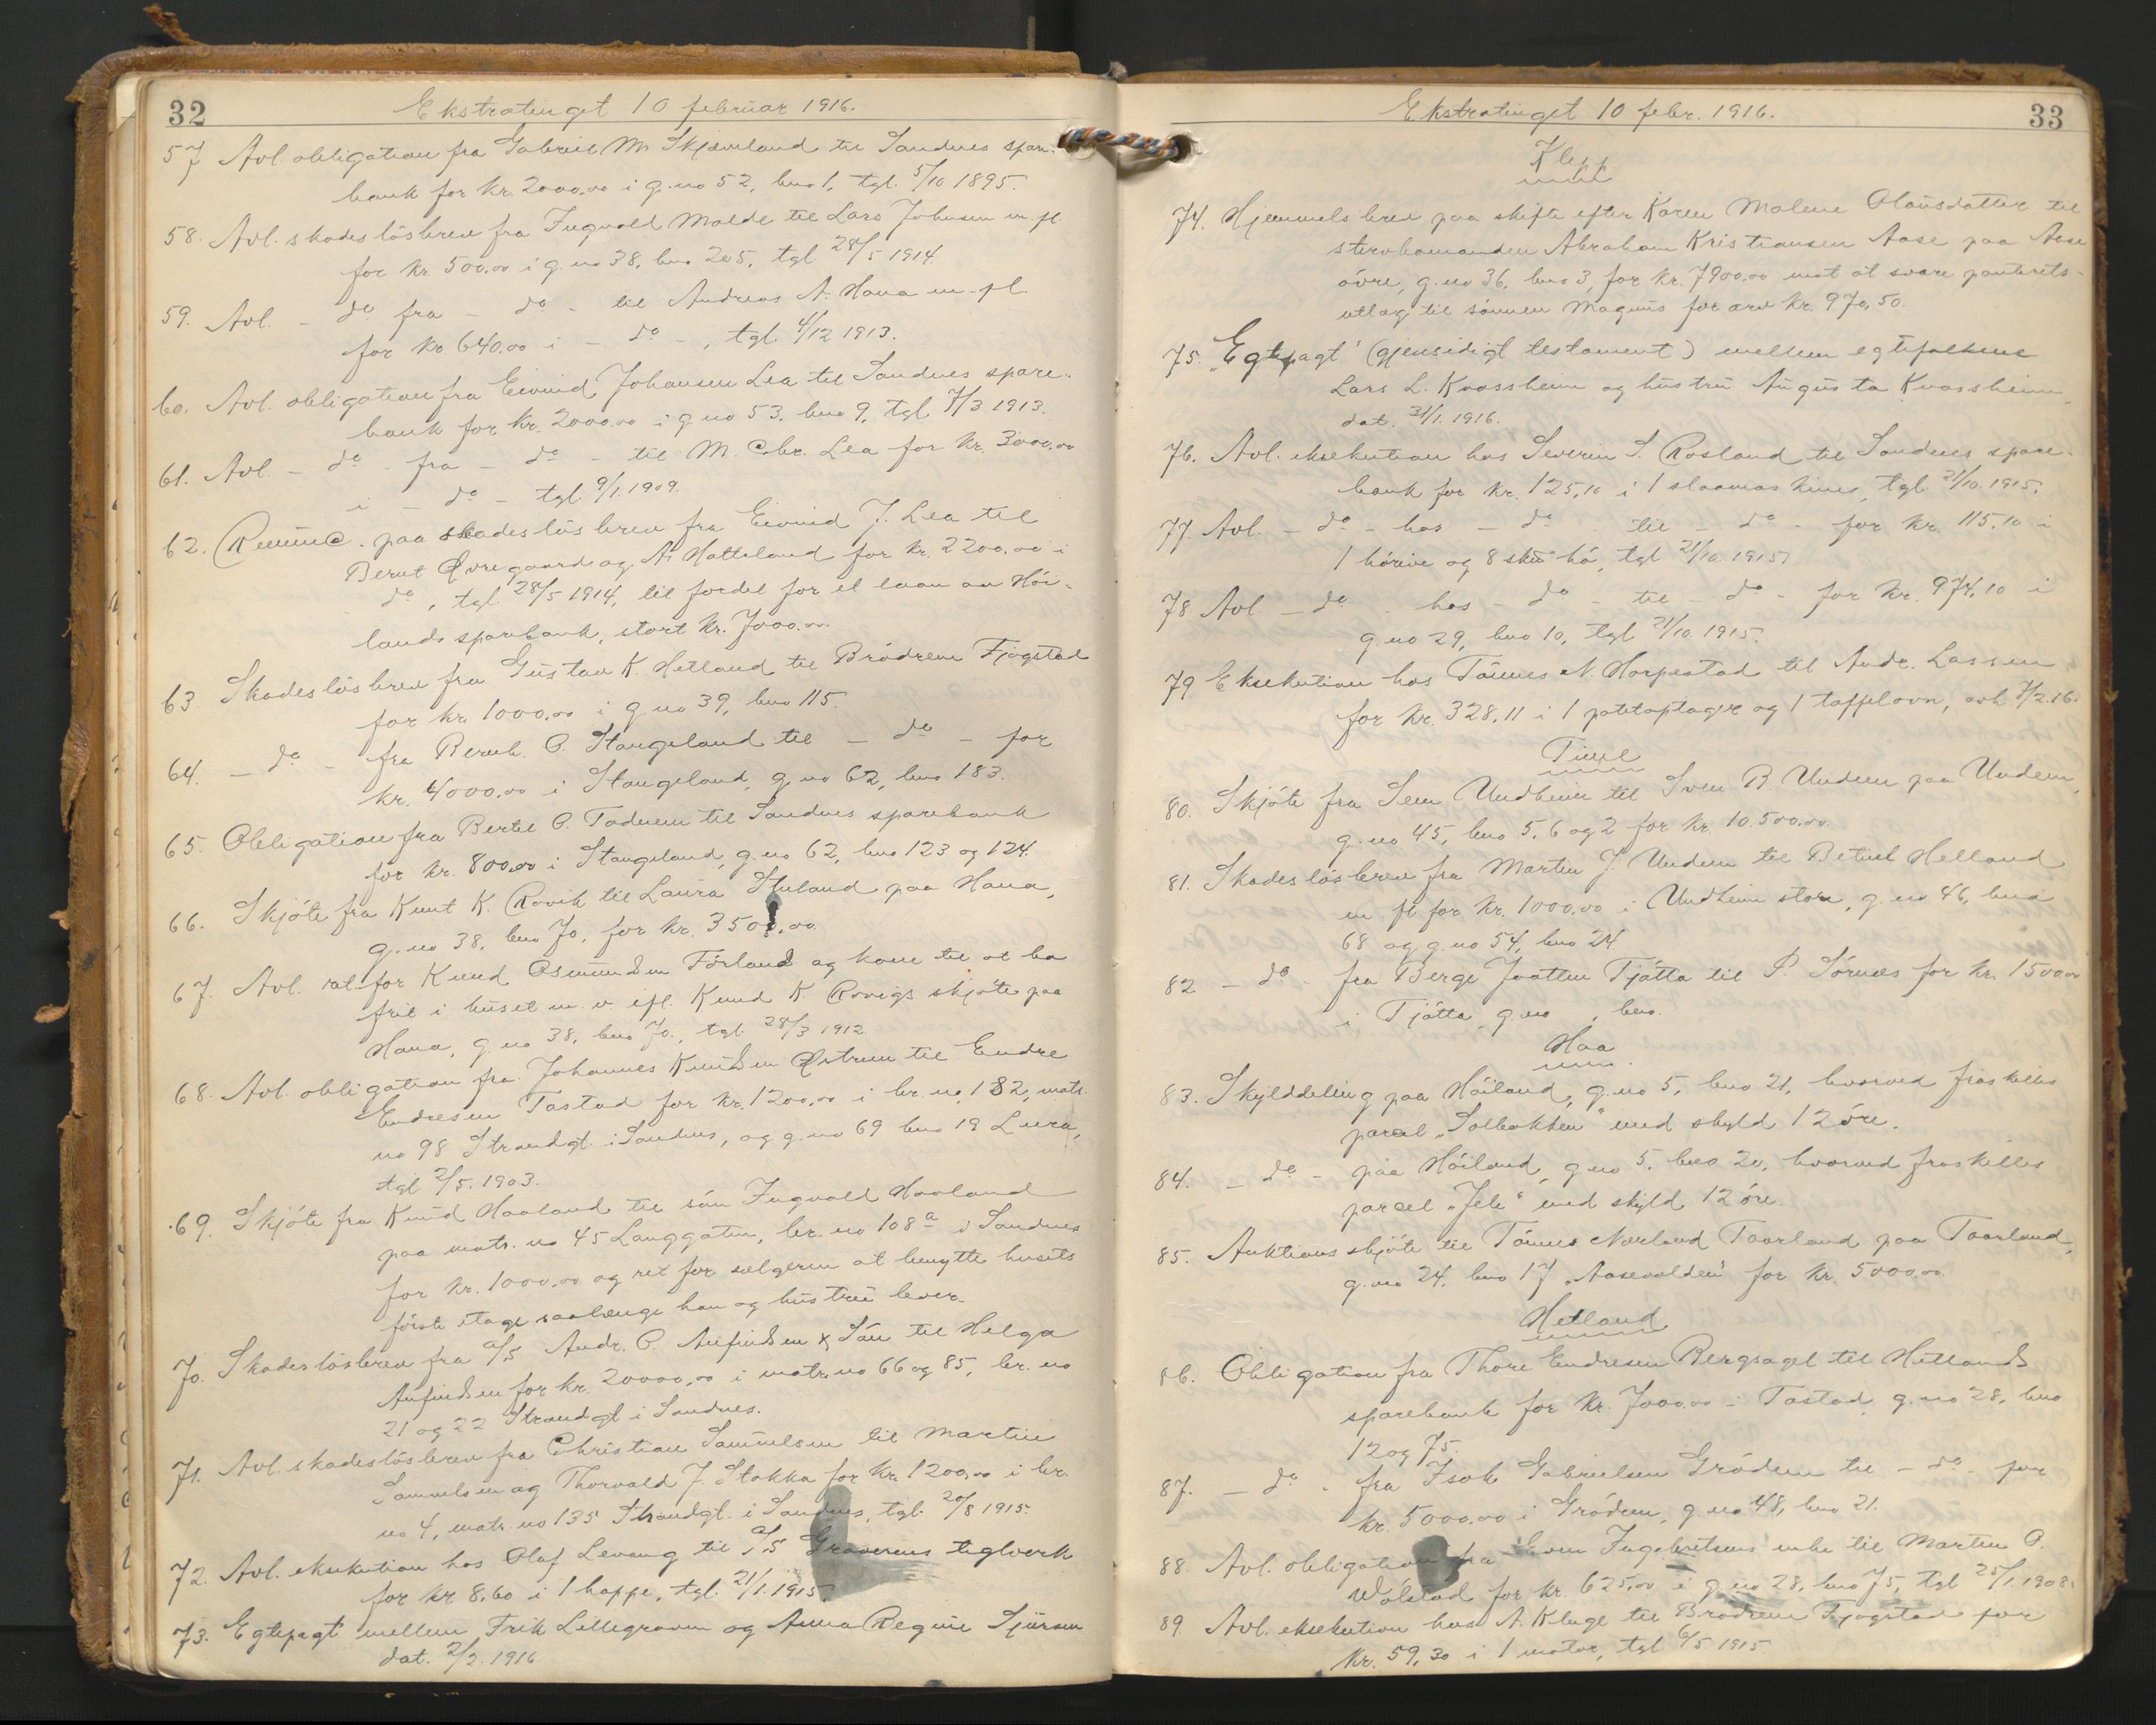 32
Ekstratinget 10 februar 1916.
57 Avl. obligation fra Gabriel M. Skjæveland til Sandnes spare-
bank for kr. 2000.00 i g.no 52, bno 1, tgl. 5/10 1895.
58. Avl. skadesløsbrev fra Ingvald Molde til Lars Johnsen m.fl.
for kr. 500.00 i g.no 38, bno 205, tgl 28/5 1914
59. Avl. - do fra - do - til Andreas A. Hana m.fl.
for kr. 640.00 i - do -, tgl. 4/12 1913.
60. Avl. obligation fra Eivind Johansen Lea til Sandnes spare-
bank for kr. 2000.00 i g.no 53, bno 9, tgl. 7/3 1913.
61. Avl - do fra - do - til M. Chr. Lea for kr. 3000.00
i - do - tgl. 9/1 1909.
62. paa skadesløsbrev fra Eivind J. Lea til
Bernt Øvregaard og A. Hatteland for kr. 2200.00 i
do, tgl 28/5 1914, til fordel for et laan av Høi-
lands sparebank, stort kr. 7000.00
63. Skadesløsbrev fra Gustav K. Hetland til Brødrene Fjogstad
for kr. 1000.00 i g.no 39, bno 115.
64. - do - fra Bernh. O. Stangeland til - do - for
kr. 4000.00 i Stangeland, g.no 62, bno 183.
65. Obligation fra Bertel O. Tadnem til Sandnes sparebank
for kr. 800.00 i Stangeland, g.no 62, bno 123 og 124.
66. Skjøte fra Knut K. Rovik til Laura paa Hana,
g.no 38, bno 70, for kr. 3500.00
67. Avl. ret for Knud Osmundsen Førland og kone til at bo
frit i huset m.v. ifl. Knud K. Rovigs skjøte paa
Hana, g.no 38, bno 70, tgl. 28/3 1912
68. Avl. obligation fra Johannes Knudsen Østrem til Endre
Endresen Tastad for kr. 1200.00 i br.no 132, matr.
no 98 Strandgt. i Sandnes, og g.no 69 bno 19 Lura,
tgl 2/5. 1903.
69. Skjøte fra Knud Haaland til søn Ingvald Haaland
paa matr. no 45 Langgaten, br.no 108a i Sandnes
for kr. 1000.00 og ret for sælgeren at benytte husets
første etage saalænge han og hustru lever.
70. Skadesløsbrev fra A/S Andr. O. Anfindsen & Søn til Helga
Anfindsen for kr. 20000.00 i matr.no 66 og 85, br.no
21 og 22 Strandgt i Sandnes.
71. Avl. skadesløsbrev fra Christian Samuelsen til Martin
Samuelsen og Thorvald J. Stokka for kr. 1200.00 i br.
no 4, matr. no 135 Strandgt. i Sandnes, tgl. 20/8 1915.
72. Avl. eksekution hos Olaf Levang til A/S Graverens teglverk
for kr 8.60 i 1 hoppe, tgl. 21/1. 1915.
73. Egtepagt mellem Frik Lillegraven og Anna Regine Sjursen
dat. 2/2. 1916
Ekstratinget 10 febr. 1916.
33
Klepp
74. Hjemmelsbrev paa skifte efter Karen Malene Olausdatter til
stervbomanden Abraham Kristiansen Aase paa Aase
øvre, g.no 36, bno 3, for kr. 7900.00 mot at svare panterets-
utlæg til sønnen Magnus for arv kr. 970,50.
75. „Egtepagt" (gjensidigt testament) mellem egtefolkene
Lars L. Kvassheim og hustru Augusta Kvassheim,
dat. 31/1. 1916.
76. Avl. eksekution hos Severin S. Rosland til Sandnes spare-
bank for kr. 125.10 i 1 slaamaskine, tgl 21/10. 1915.
77. Avl. - do - hos - do til - do - for kr. 115.10 i
1 hørive og 8 sku hø, tgl 21/10. 1915.
78. Avl. - do - hos - do - til - do - for kr. 974,10 i
g.no 29, bno 10, tgl 21/10. 1915.
79. Eksekution hos Tønnes N. Horpestad til Andr. Lassen
for kr. 328.11 i 1 potetoptager og 1 toffelovn, avh 7/2.16.
Time
80. Skjøte fra Sem Undheim til Sven B. Undem paa Undem,
g.no 45, bno 5, 6 og 2 for kr. 10.500.00.
81. Skadesløsbrev fra Martin J. Undem til Betuel Helland
m.fl for kr. 1000.00 i Undheim store, g.no 46, bno
68 og g.no 54, bno 24
82 - do - fra Berge Jaatten Tjøtta til P. Sørnes for kr. 1500.00
i Tjøtta, g.no , bno.
Haa
83. Skylddeling paa Høiland, g.no 5, bno 21, hvorved fraskilles
parcel „Solbakken" med skyld 12 øre.
84. - do - paa Høiland, g.no 5, bno 20, hvorved fraskilles
parcel „Jele" med skyld 12 øre.
85. Auktionsskjøte til Tønnes Nærland Taarland paa Taarland,
g.no 24, bno 17 „Aasevolden" for kr. 5000.00.
Hetland
86. Obligation fra Thore Endresen Bergsagel til Hetlands
sparebank for kr. 7000.00 i Tastad, g.no 28, bno
12 og 75.
87. - do - fra Isak Gabrielsen Grødem til - do - for
kr. 5000.00 i Grødem, g.no 48, bno 21.
88. Avl. obligation fra Even Ingebretsens enke til Martin O.
Wølstad for kr. 625.00 i g.no 28, bno 75, tgl 25/1. 1908.
89. Avl. eksekution hos A. Kluge til Brødrene Fjogstad for
kr. 59,30 i 1 motor, tgl 6/5. 1915.